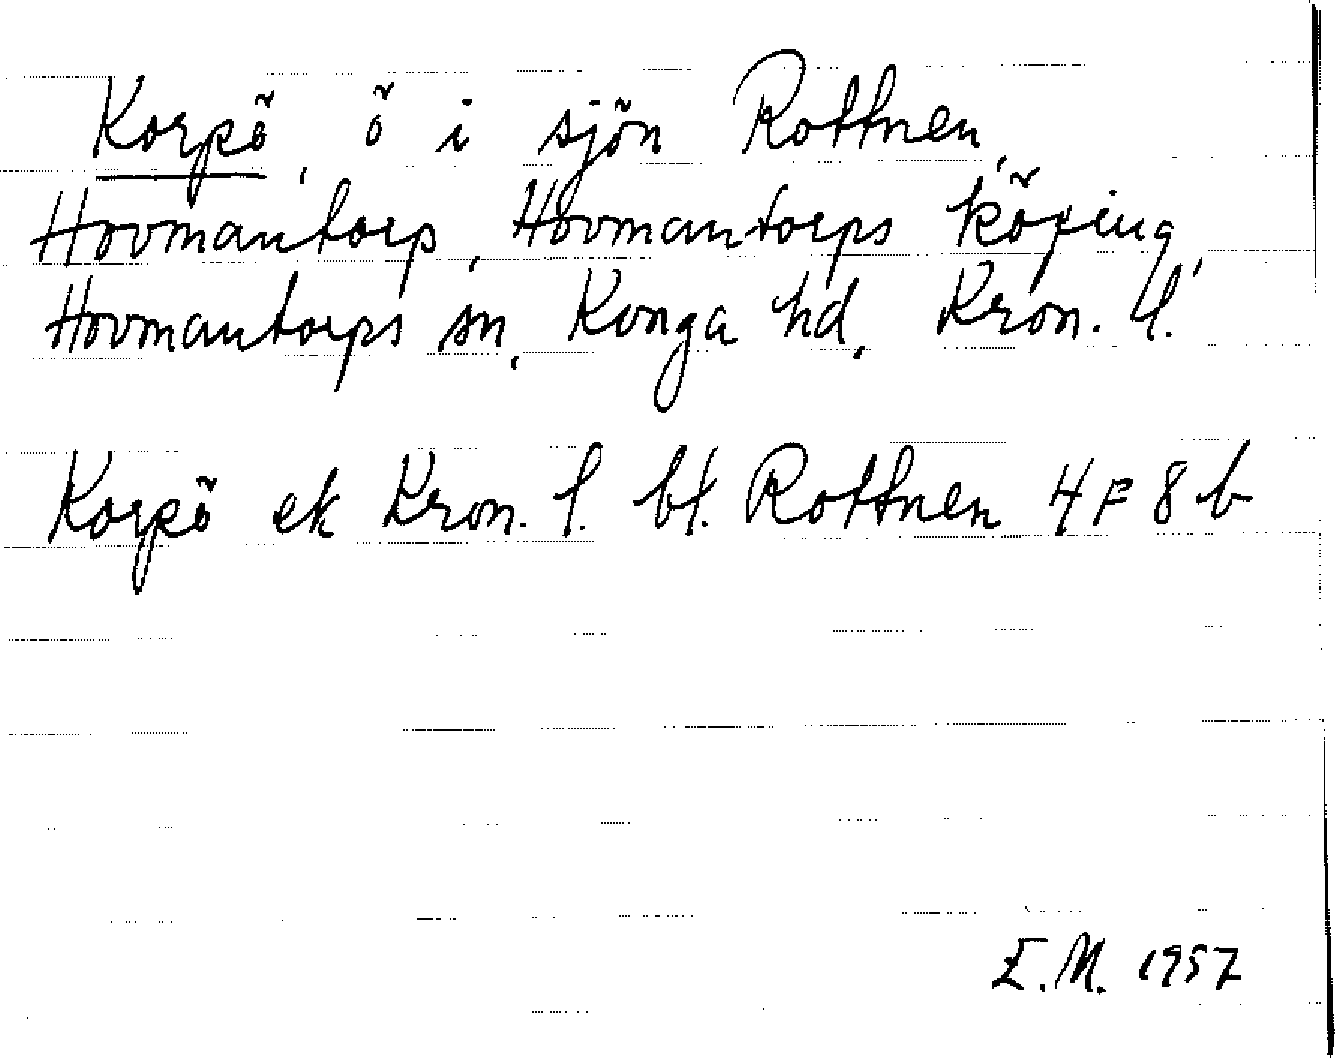 Korpö, ö i sjön Rottnen,
Hovmantorp, Hovmantorps köping,
Hovmantorps sn, Konga hd, Kron. l.
Korpö ek Kron. l. bl. Rottnen 4 F 8 b
E.M. 1957